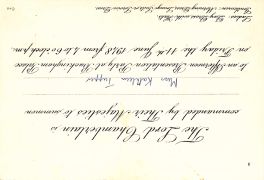 The Lord Chamberlain is
commanded by Their Majesties to summon
Miss Kathleen Tupper
to an Afternoon Presentation Party at Buckingham Palace
on Tuesday the 11th June 1958 from 4 to 6 o'clock p.m.
Ladies: Day Dress with Hats
Gentlemen: Morning Dress, Lounge Suits or Service Dress